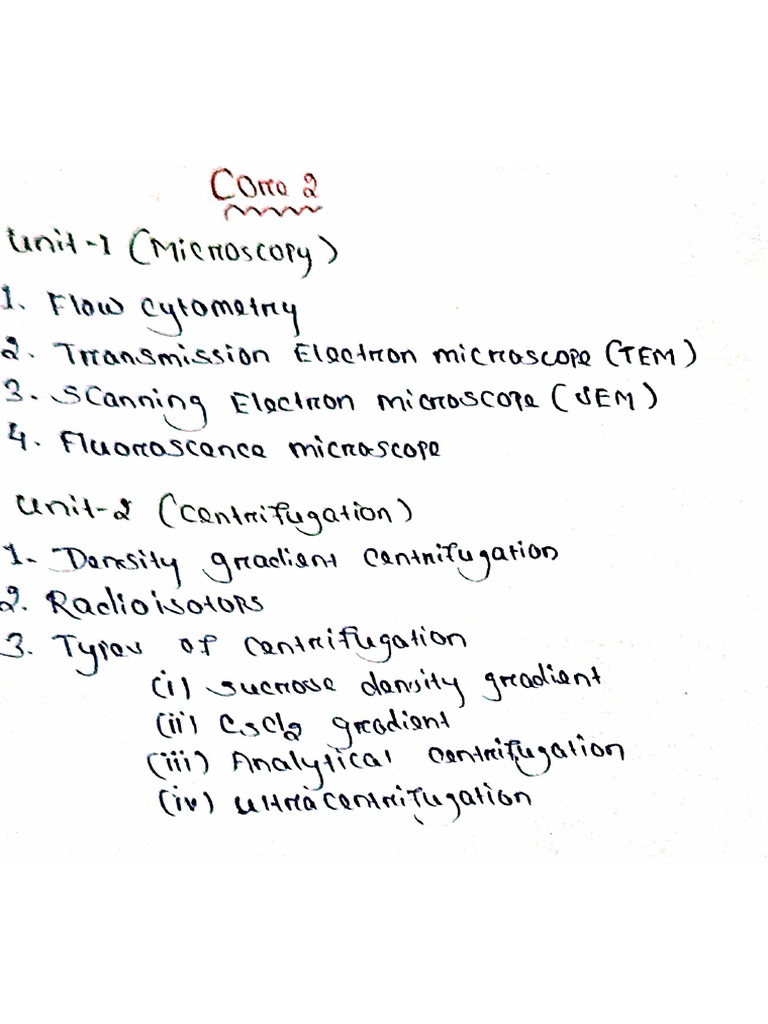 Core 2
Unit-1 (Microscopy)
1. Flow cytometry
2. Transmission Electron microscope (TEM)
3. Scanning Electron microscope (SEM)
4. Fluoroscence microscope
Unit-2 (Centrifugation)
1- Density gradient centrifugation
2. Radioisotops
3. Types of centrifugation
(i) sucrose density gradient
(ii) CsCl2 gradient
(iii) Analytical centrifugation
(iv) Ultracentrifugation